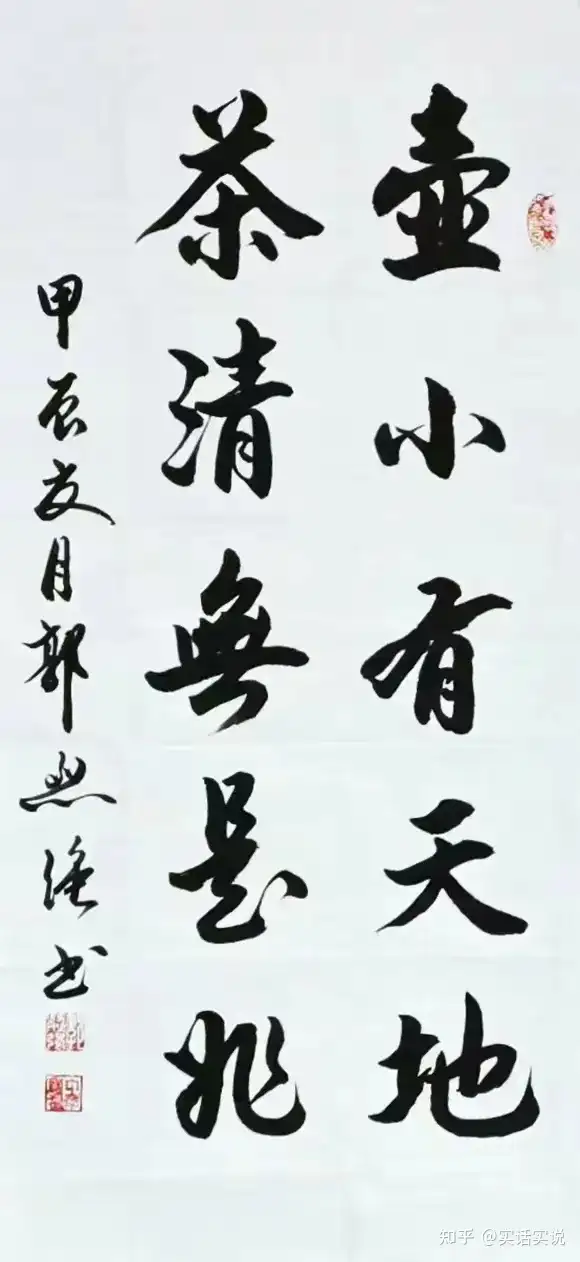 壺小有天地
茶清無是非
甲辰友月郭
書
知乎 @实话实说